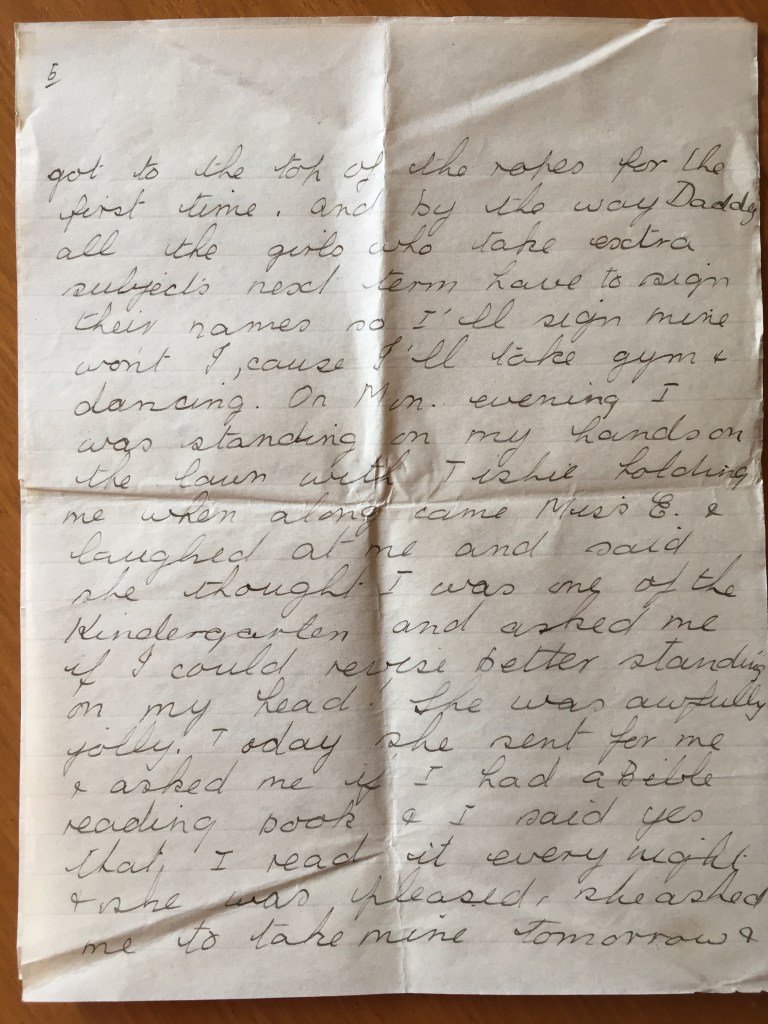 5
got to the top of the ropes for the
first time. And by the way Daddy
all the girls who take extra
subjects next term have to sign
their names so I'll sign mine
wont I, cause I'll take gym &
dancing. On Mon. evening I
was standing on my hands on
the lawn with Tishie holding
me when along came Miss E. &
laughed at me and said
she thought I was one of the
Kindergarten and asked me
if I could revise better standing
on my head! She was awfully
jolly. Today she sent for me
& asked me if I had a Bible
reading book & I said yes
that I read it every night
& she was pleased, she asked
me to take mine tomorrow &